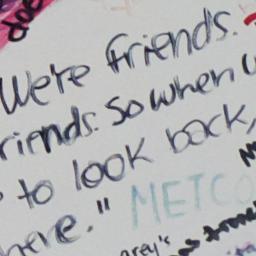 We're friends.
riends. So when
to look back,
here."
METCO
grey's